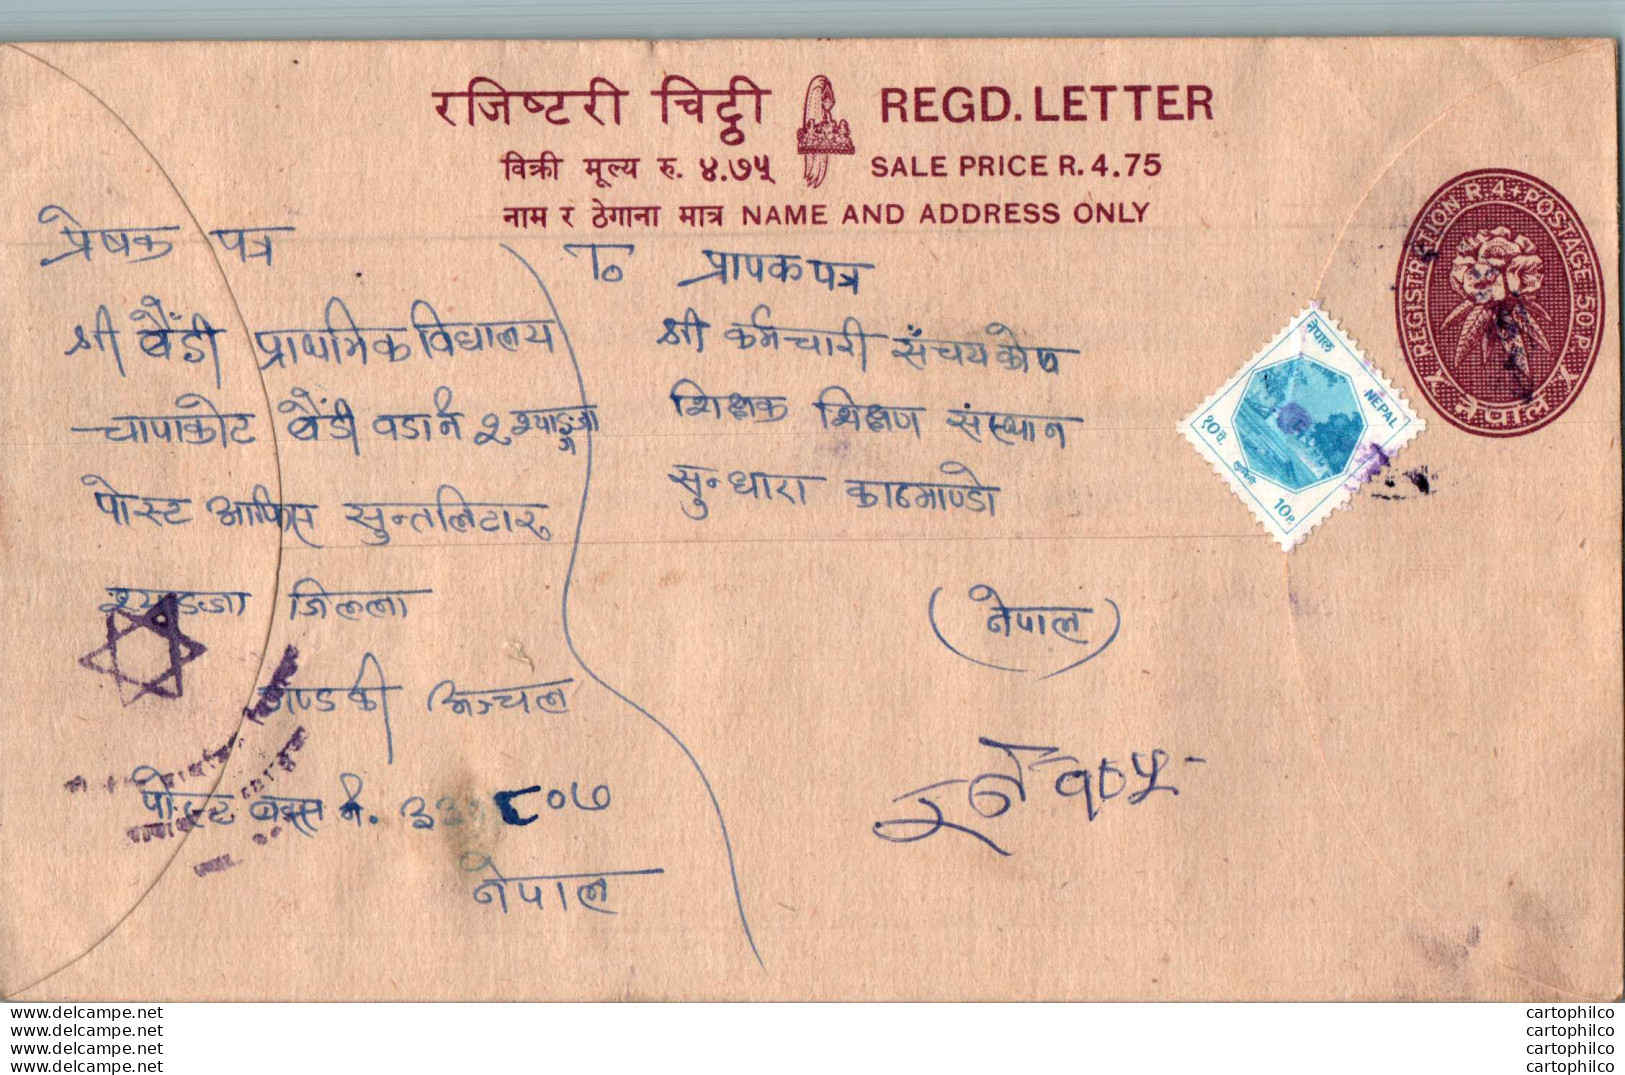 रजिष्टरी चिट्ठी REGD. LETTER
विक्री मूल्य रु. ४.७५ SALE PRICE R. 4.75
नाम र ठेगाना मात्र NAME AND ADDRESS ONLY
REGISTRATION R 4 + POSTAGE 50 P.
नेपाल
नेपाल
NEPAL
१० पै.
लुम्बिनी
10 P.
प्रेषक पत्र
श्री बैंडी प्राथमिक विद्यालय
चापाकोट बैंडी वडा नं २ स्याङ्जा
पोस्ट आफिस सुन्तलिटारु
स्याङजा जिल्ला
गण्डकी अञ्चल
पोस्ट बक्स नं. ३३ ८०७
नेपाल
To प्रापक पत्र
श्री कर्मचारी संचय कोष
शिक्षक शिक्षण संस्थान
सुन्धारा काठमाण्डो
(नेपाल)
र नं १०५
www.delcampe.net
www.delcampe.net
www.delcampe.net
www.delcampe.net
cartophilco
cartophilco
cartophilco
cartophilco